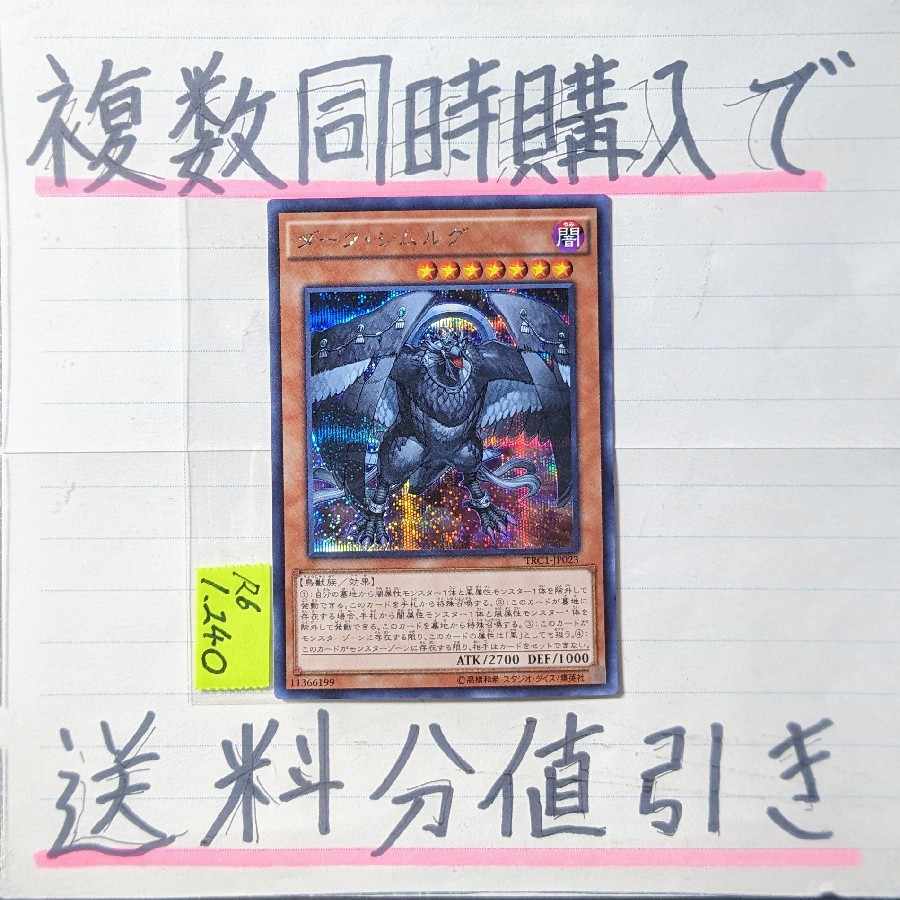 複数同時購入で
ダーク・シムルグ
闇
TRC1-JP023
【鳥獣族/効果】
①:自分の墓地から闇属性モンスター1体と風属性モンスター1体を除外して
発動できる。このカードを手札から特殊召喚する。②:このカードが墓地に
存在する場合、手札から闇属性モンスター1体と風属性モンスター1体を
除外して発動できる。このカードを墓地から特殊召喚する。③:このカードが
モンスターゾーンに存在する限り、このカードの属性は「風」としても扱う。④:
このカードがモンスターゾーンに存在する限り、相手はカードをセットできない。
ATK/2700 DEF/1000
11366199
©高橋和希 スタジオ・ダイス/集英社
R6
1.240
送料分値引き